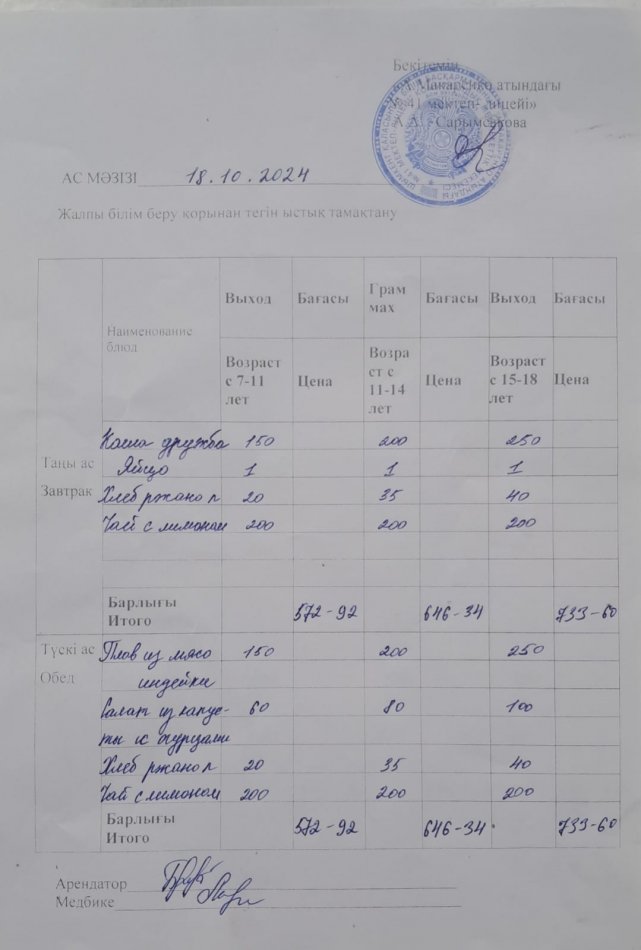 Бекітемін
Макаренко атындағы
№ 41 мектеп- лицейі»
А.А. Сарымсакова
АС МӘЗІЗІ 18.10.2024
Жалпы білім беру қорынан тегін ыстық тамақтану
Наименование блюд Выход Бағасы Грам мах Бағасы Выход Бағасы
Возраст с 7-11 лет Цена Возра ст с 11-14 лет Цена Возраст с 15-18 лет Цена
Таңы ас
Завтрак
Каша дружба 150 200 250
Яйцо 1 1 1
Хлеб ржано п 20 35 40
Чай с лимоном 200 200 200
Барлығы
Итого 572-92 646-34 733-60
Түскі ас
Обед
Плов из мясо 150 200 250
индейки
Салат из капус- 60 80 100
ты с огурцами
Хлеб ржано п 20 35 40
Чай с лимоном 200 200 200
Барлығы
Итого 572-92 646-34 733-60
Арендатор
Медбике